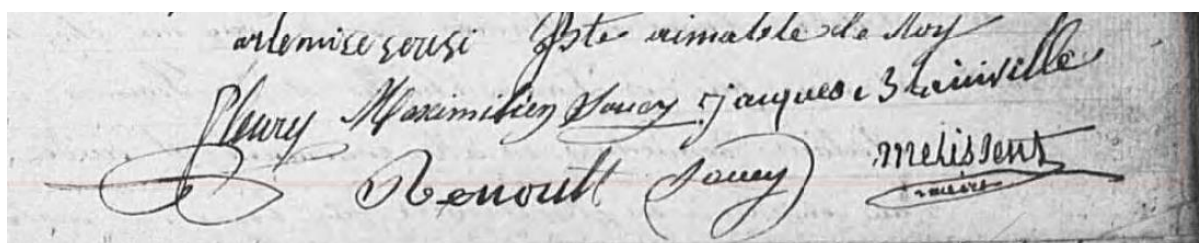 artemise sousi Bte aimable le Roy
Fleury Maximilien Soucy jacques Blainville
Renoult Soucy melissent
maire